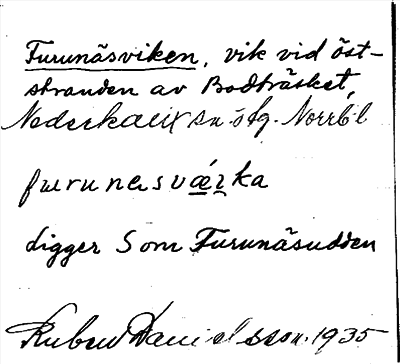 Furunäsviken, vik vid öst-
stranden av Bodträsket,
Nederkalix sn ötg. Norrb. l
furunesvǽrka
digger Som Furunäsudden
Ruben Danielsson. 1935